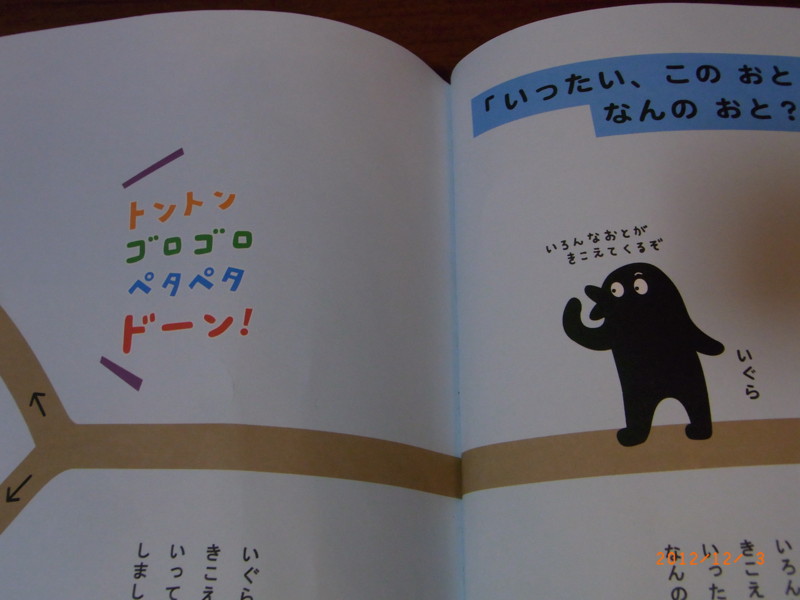 トントン
ゴロゴロ
ペタペタ
ドーン!
「いったい、この おと
なんの おと?
いろんなおとが
きこえてくるぞ
いぐら
いぐら
きこえ
いって
しまし
いろん
きこえ
いった
なんの
2012/12/ 3